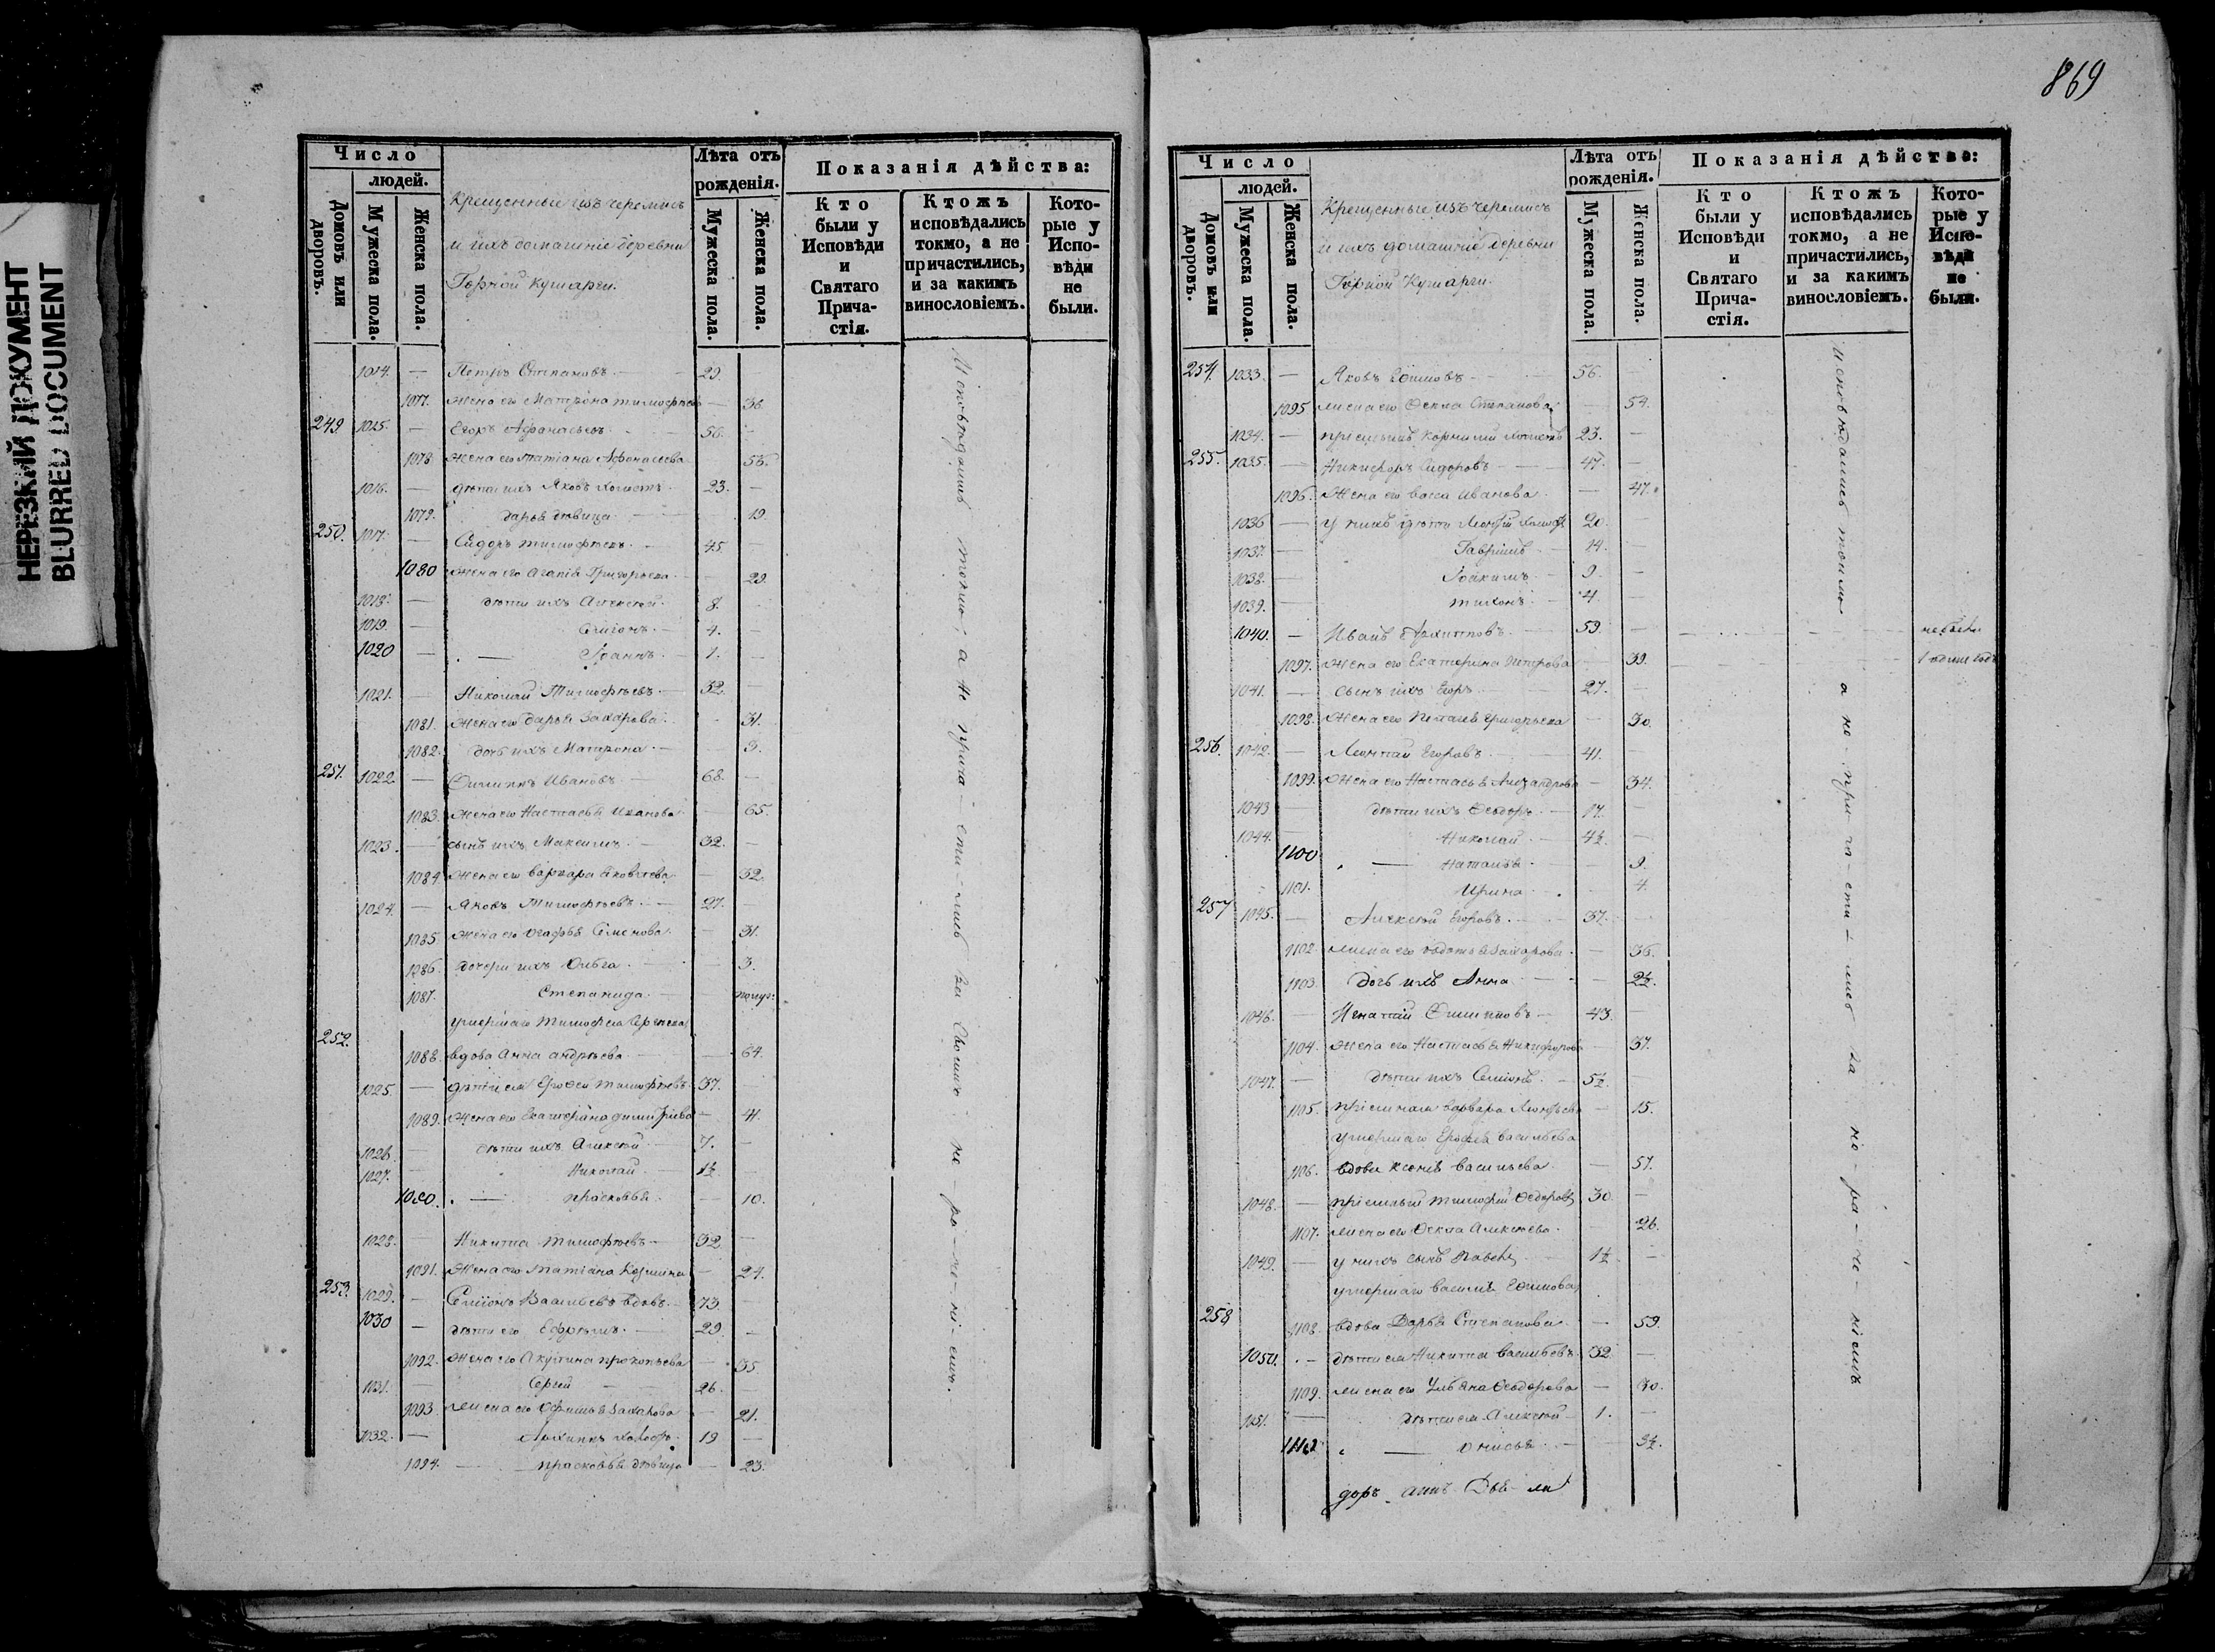 НЕРЕЗКИЙ ДОКУМЕНТ
BLURRED DOCUMENT
Число
людей.
Домовъ или дворовъ.
Мужеска пола.
Женска пола.
Крещенные изъ черемисъ
и ихъ домашніе деревни
Горной Кушарги.
Лѣта отъ рожденія.
Мужеска пола.
Женска пола.
Показанія дѣйства:
Кто были у Исповѣди и Святаго Причастія.
Ктожъ исповѣдались токмо, а не причастились, и за какимъ винословіемъ.
Которые у Исповѣди не были.
Исповѣдались токмо, а не причастились за своимъ не-ра-че-ні-емъ.
1014. — Петръ Степановъ — 29.
1077. Жена его Матрона Тимофѣева — 36.
249 1015. — Егоръ Афанасьевъ — 56. —
1078 Жена его Татіана Афонасьева 56.
1016. — дѣти ихъ Яковъ холостъ. 23. —
1079. Дарья дѣвица — 19
250. 1017. — Сидоръ Тимофѣевъ — 45.
1080 Жена его Агапія Григорьева — 29.
1018. — дѣти ихъ Алексѣй. 8.
1019. — Симіонъ. — 4. —
1020 — Іоаннъ. — 1. —
1021. — Николай Тимофѣевъ — 32. —
1081. Жена его Дарья Захарова. — 31.
1082. дочь ихъ Матрона. — 9.
251. 1022. — Филиппъ Ивановъ — 68. —
1083. Жена его Настасья Иванова — 65.
1023. — сынъ ихъ Максимъ. — 32. —
1084. Жена его Варвара Яковлева — 32.
1024. — Яковъ Тимофѣевъ. — 27. —
1085. Жена его Агафья Семенова — 31.
1086. дочери ихъ Ольга. — 3.
1087. Степанида. — полуг.
умершаго Тимофея
252. 1088. вдова Анна Андрѣева — 64.
1025. — дѣти ея Ерофей Тимофѣевъ. 37. —
1089. Жена его Екатерина Димитріева — 41.
1026. — дѣти ихъ Алексѣй — 7. —
1027. — Николай. — 1½ —
1090. Прасковья. — 10.
1028. — Никита Тимофѣевъ — 32 —
1091. Жена его Татіана — 24.
253. 1029. — Семіонъ Васильевъ вдовъ. — 73 —
1030 — дѣти его Ефремъ. — 29. —
1092. Жена его Акулина Прокопьева — 35.
1031. — Сергій — 26. —
1093 Жена его Захарова — 21.
1032. — Архиппъ холостъ. 19 —
1094. — Прасковья дѣвица — 23.
869
Число
людей.
Домовъ или дворовъ.
Мужеска пола.
Женска пола.
Крещенные изъ черемисъ
и ихъ домашніе деревни
Горной Кушарги.
Лѣта отъ рожденія.
Мужеска пола.
Женска пола.
Показанія дѣйства:
Кто были у Исповѣди и Святаго Причастія.
Ктожъ исповѣдались токмо, а не причастились, и за какимъ винословіемъ.
Которые у Исповѣди не были.
Исповѣдались токмо а не причастились за не-ра-че-ніемъ
254. 1033. — Яковъ Ефимовъ — 56.
1095 жена его Фекла Степанова — 54.
1034. — пріемышъ Корнилій холостъ 23. —
255. 1035. — Никифоръ Сидоровъ — 47. —
1096. Жена его Васса Иванова. — 47.
1036 — у нихъ дѣти Леонтій холостъ 20. —
1037. — Гавріилъ — 14. —
1038. — Іоакимъ — 9. —
1039. — Тихонъ. — 4. —
1040. — Иванъ Архипповъ. — 59. — небыли
1097. Жена его Екатерина Петрова — 39.
1041. — сынъ ихъ Егоръ — 27. —
1098. Жена его Пелагея Григорьева — 30.
256. 1042. — Леонтій Егоровъ. — 41.
1099. Жена его Настасья Александрова — 34.
1043 — дѣти ихъ Ѳеодоръ. — 17. —
1044. — Николай — 4½ —
1100 — Наталья. — 9.
1101. Ирина. — 4.
257 1045. — Алексѣй Егоровъ. — 37. —
1102. жена его Авдотья Захарова. — 36.
1103. дочь ихъ Анна — 2½.
1046. — Игнатій Филипповъ — 43. —
1104. Жена его Настасья Никифорова — 37.
1047. — дѣти ихъ Семіонъ. — 5½. —
1105. пріемная Варвара Леонтьева — 15.
умершаго Ерофея Васильева
1106. вдова Ксенія Васильева. — 57.
1048. — пріемный Тимофей Ѳедоровъ 30. —
1107. жена его Фекла Алексѣева. — 26.
1049. — у нихъ сынъ Павелъ — 1½ —
умершаго Василья Ефимова
258 1108. вдова Дарья Степанова — 59.
1050. — дѣти ея Никита Васильевъ 32. —
1109. жена его Ульяна Ѳеодорова — 30.
1051. — дѣти ея Алексѣй — 1. —
1110 — Анисья. — 3½.